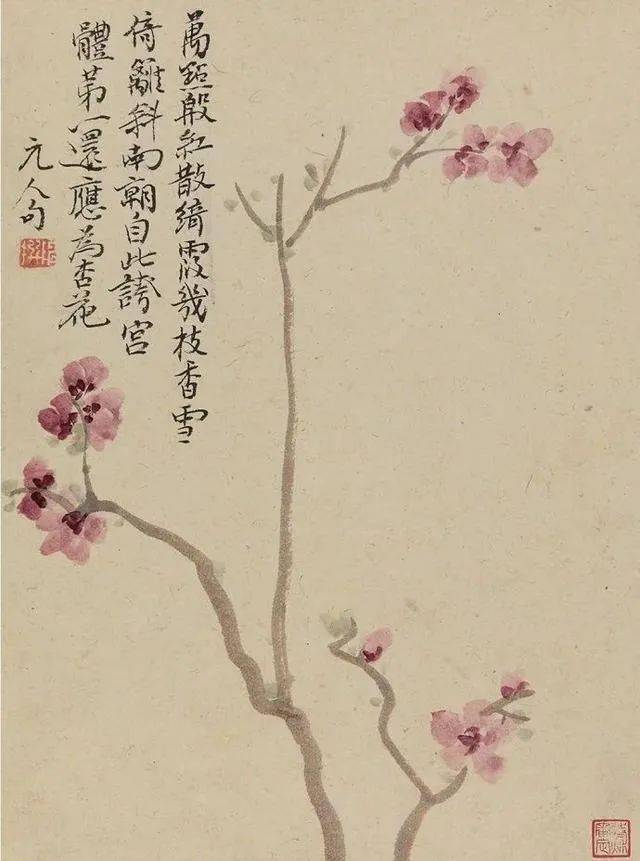 萬點殷紅散綺霞幾枝香雪
倚籬斜南朝自此誇宮
體第一還應為杏花
元人句